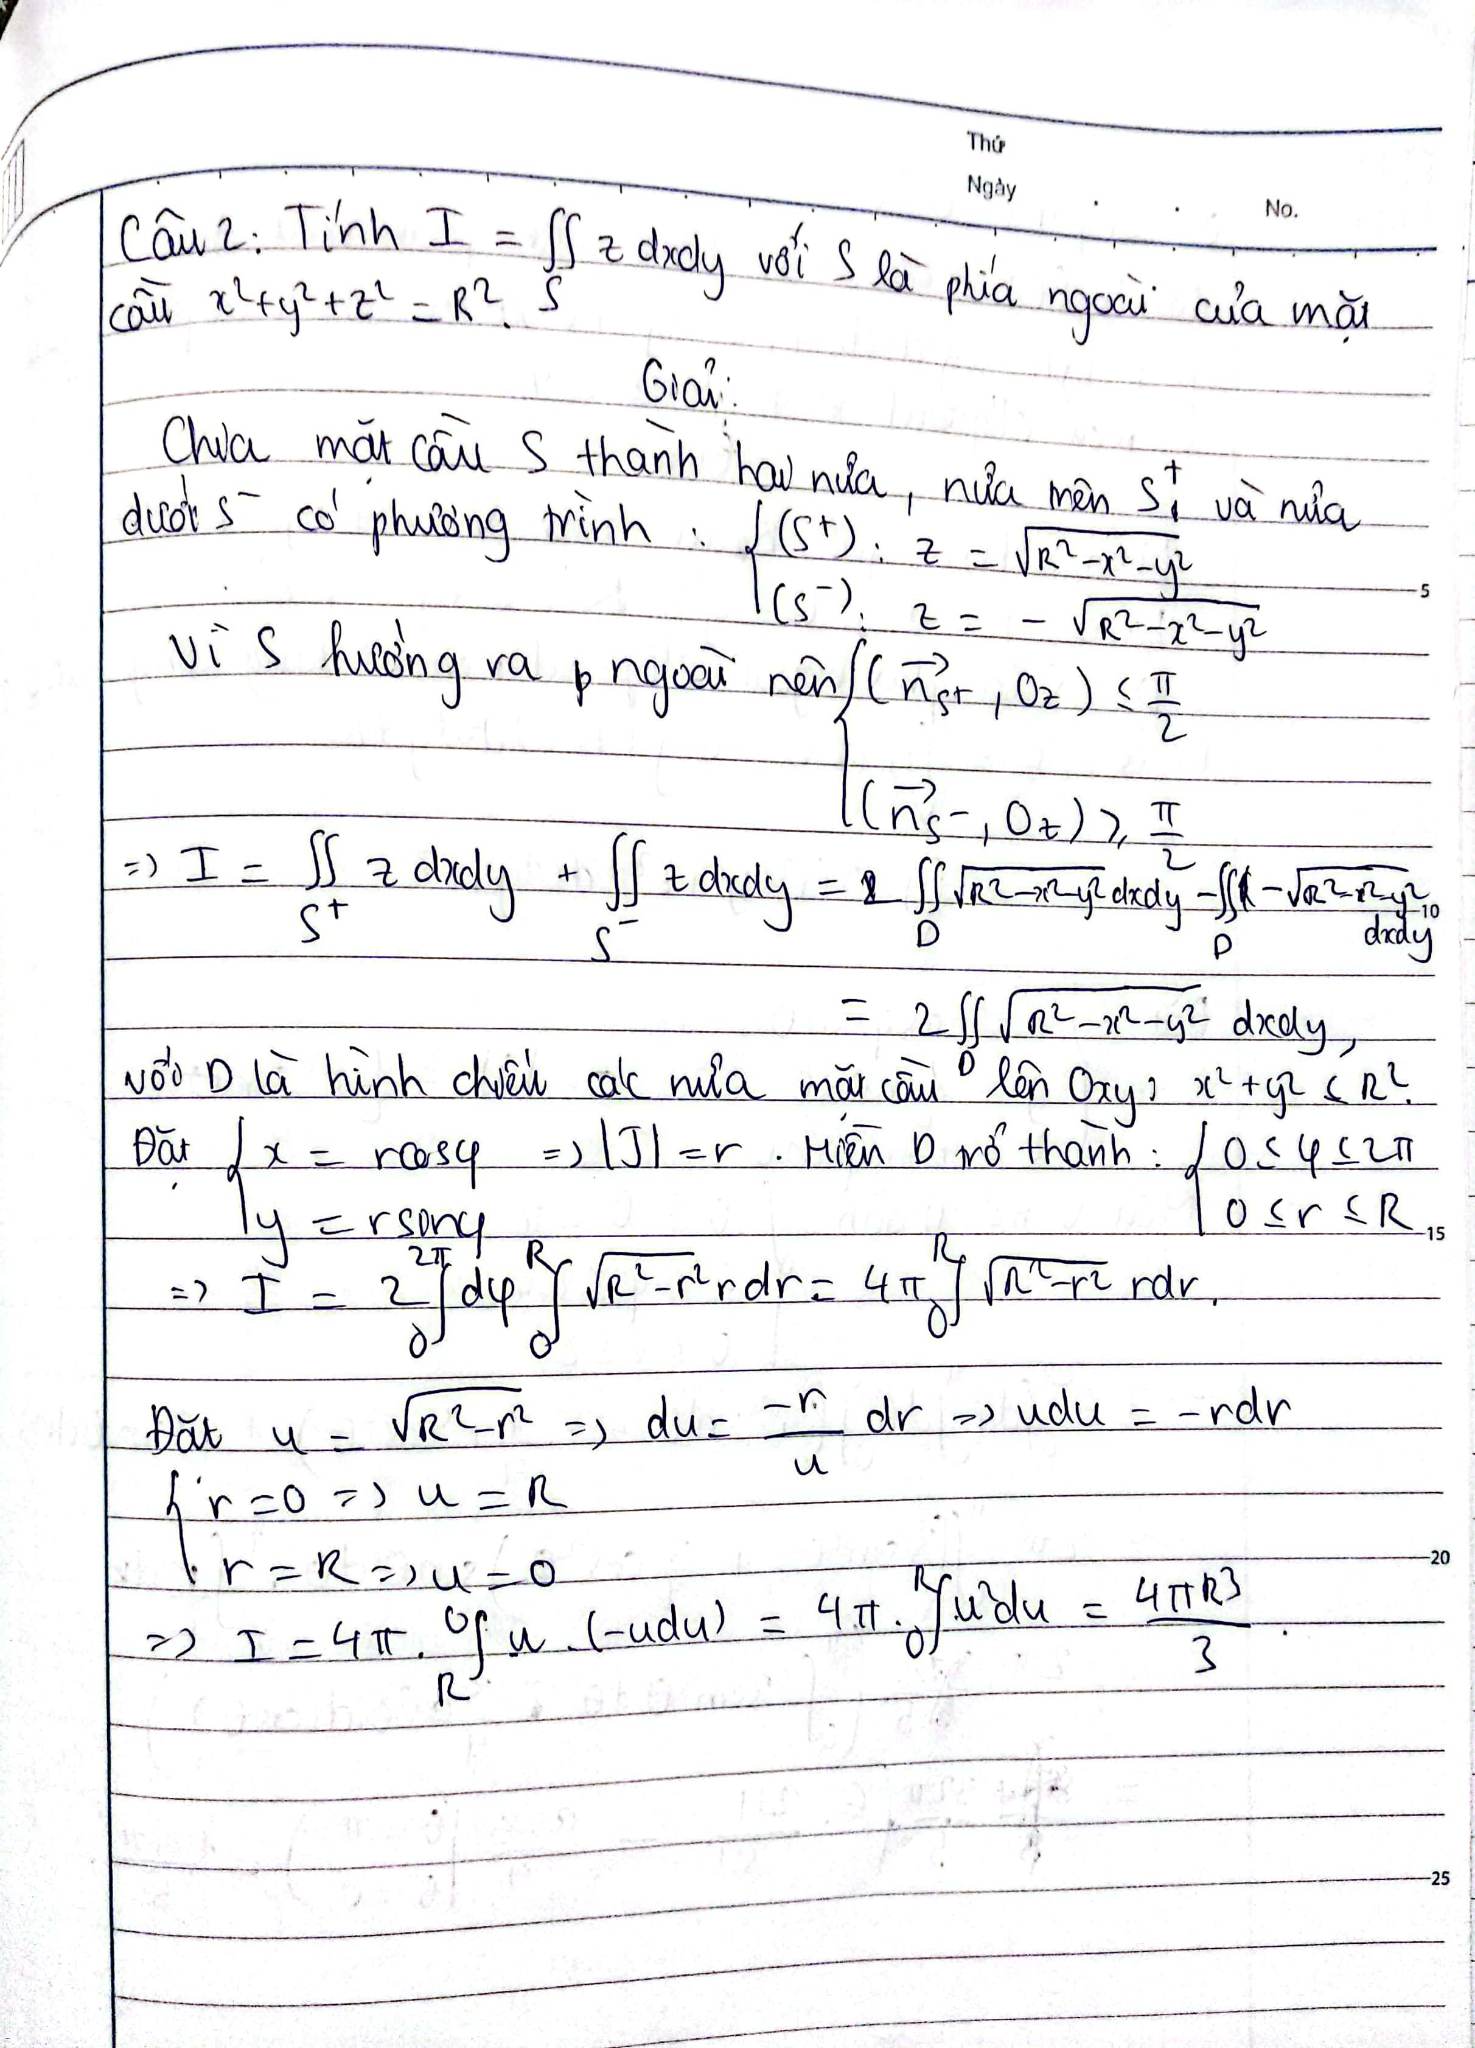 Thứ
Ngày
No.
Câu 2: Tính I = ∬_S z dxdy với S là phía ngoài của mặt
cầu x²+y²+z² = R².
Giải:
Chia mặt cầu S thành hai nửa, nửa trên S⁺ và nửa
dưới S⁻ có phương trình : { (S⁺): z = √(R²-x²-y²)
(S⁻): z = - √(R²-x²-y²)
5
Vì S hướng ra ngoài nên { (n⃗_S⁺, Oz) ≤ π/2
(n⃗_S⁻, Oz) ≥ π/2
=> I = ∬_S⁺ z dxdy + ∬_S⁻ z dxdy = ∬_D √(R²-x²-y²) dxdy - ∬_D -√(R²-x²-y²) dxdy
10
= 2∬_D √(R²-x²-y²) dxdy,
với D là hình chiếu các nửa mặt cầu lên Oxy: x²+y² ≤ R².
Đặt { x = rcosφ => |J| = r . Miền D trở thành : { 0 ≤ φ ≤ 2π
y = rsinφ 0 ≤ r ≤ R
15
=> I = 2 ∫₀^2π dφ ∫₀^R √(R²-r²) rdr = 4π ∫₀^R √(R²-r²) rdr.
Đặt u = √(R²-r²) => du = -r/u dr => udu = -rdr
{ r=0 => u = R
r = R => u = 0
20
=> I = 4π . ∫_R^0 u .(-udu) = 4π. ∫₀^R u²du = 4πR³/3 .
25